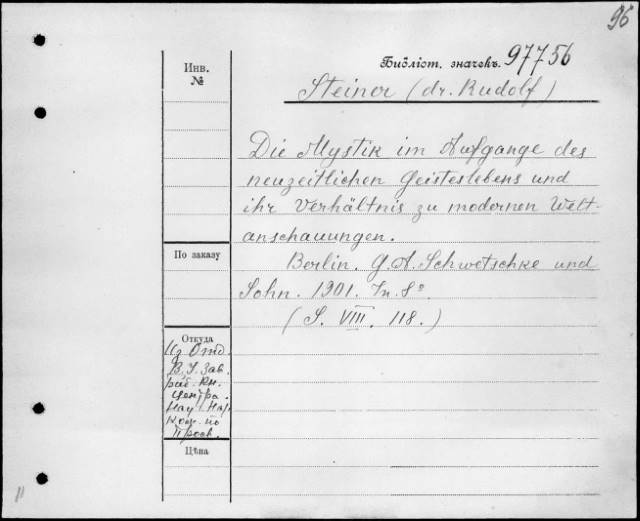 96
Инв.
№
Библіот. значекъ. 97756
Steiner (dr. Rudolf)
Die Mystik im Aufgange des
neuzeitlichen Geisteslebens und
ihr Verhältnis zu modernen Welt-
anschauungen.
По заказу
Berlin. G. A. Schwetschke und
Sohn. 1901. In. 8°.
(S. VIII. 118.)
Откуда
Из Отд.
В. У. Зав.
Кн.
Центра.
Нау
Ком. по
Просв.
Цѣна